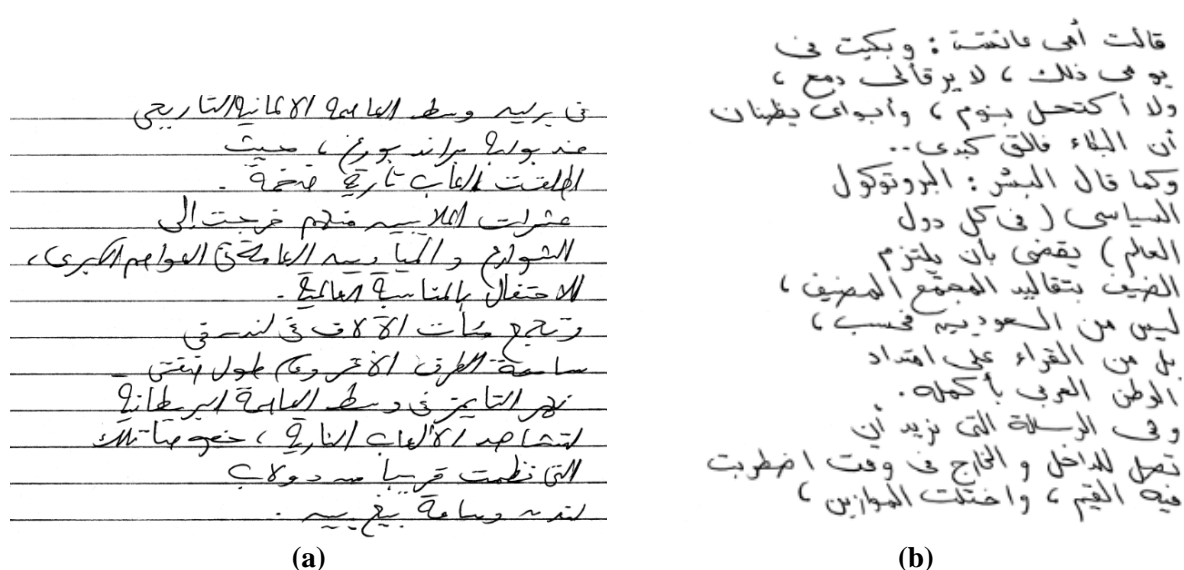 في برلين وسط العاصمة الالمانية التاريخي
عند بوابة براندبورغ ، حيث
اطلقت العاب نارية ضخمة .
عشرات الملايين منهم خرجت الى
الشوارع و الميادين العامة في العواصم الكبرى ،
للاحتفال بالمناسبة العالمية .
وتجمع مئات الآلاف في لندن في
ساحة الطرف الأغر وعلى طول ضفتي
نهر التايمز في وسط العاصمة البريطانية
لتشاهد الألعاب النارية ، خصوصا تلك
التي نظمت قريبا من دولاب
لندن وساعة بيغ بين .
(a)
قالت أمي عائشة : وبكيت في
يومي ذلك ، لا يرقأ لي دمع ،
ولا أكتحل بنوم ، وأبواي يظنان
أن البكاء فالق كبدي ..
وكما قال البشر : البروتوكول
السياسي ( في كل دول
العالم ) يقضي بأن يلتزم
الضيف بتقاليد المجتمع المضيف ،
ليس من السعوديين فحسب ،
بل من القراء على امتداد
الوطن العربي بأكمله .
وفي الرسالة التي نريد أن
تصل للداخل و الخارج في وقت اضطربت
فيه القيم ، واختلت الموازين ،
(b)